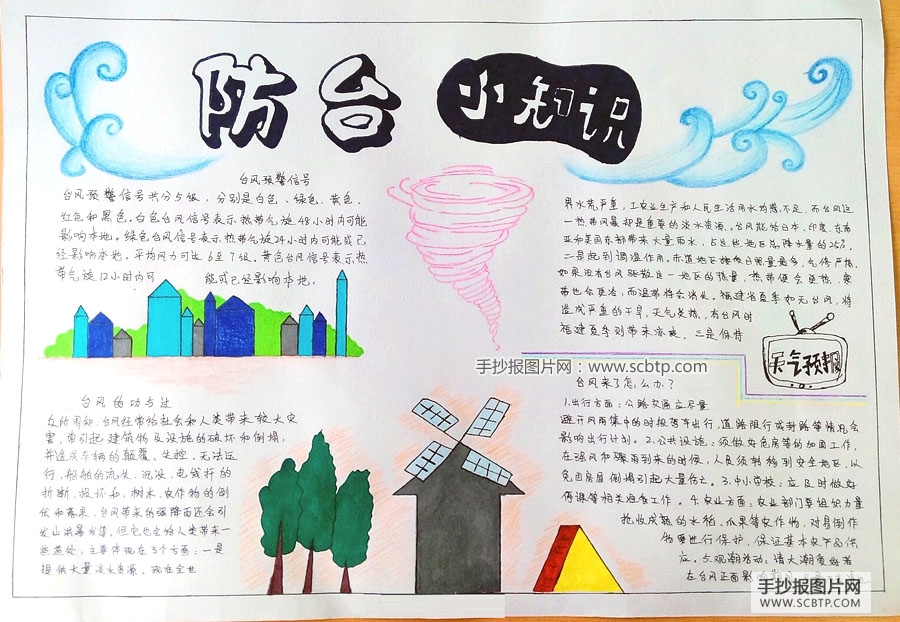 防台小知识
台风预警信号
台风预警信号共分5级，分别是白色、绿色、黄色、
红色和黑色。白色台风信号表示热带气旋48小时内可能
影响本地。绿色台风信号表示热带气旋24小时内可能或已
经影响本地，平均风力可达6至7级。黄色台风信号表示热
带气旋12小时内可 能或已经影响本地。
台风的功与过
众所周知，台风经常给社会和人类带来较大灾
害，常引起建筑物及设施的破坏和倒塌，
并造成车辆的颠覆、失控、无法运
行，船舶的流失、沉没，电线杆的
折断、毁坏和，树木、农作物的倒
伏和落果，台风带来的强降雨还会引
发山洪暴发等。但它也会给人类带来一
些益处，主要体现在3个方面：一是
提供大量淡水资源。现在全世
界水荒严重，工农业生产和人民生活用水均感不足，而台风这
一热带风暴却是重要的淡水资源。台风能给日本、印度、东南
亚和美国东部带来大量雨水，占这些地区总降水量的25%。
二是起到调温作用。赤道地区接收日照量最多，气候严热，
如果没有台风驱散这一地区的热量，热带便会更热，寒
带也会更冷，而温带将会消失。福建省夏季如无台风，将
造成严重的干旱，天气炎热，有台风时
福建夏季则带来凉爽。三是保持
天气预报
手抄报图网：www.scbtp.com
台风来了怎么办？
1.出行方面：公路交通应尽量
避开风雨集中的时段暂弃出行，道路限行或封路等情况会
影响出行计划。2.公共设施：须做好危房等的加固工作，
在强风和骤雨到来的时候，人员须转移到安全地区，以
免因房屋倒塌引起大量伤亡。3.中小学校：应及时做好
停课等相关准备工作。4.农业方面：农业部门要组织力量
抢收成熟的水稻、瓜果等农作物，对易倒作
物要进行保护，保证基本农产品供
应。5.观潮活动：请大潮爱好者
在台风正面影
手抄报图片网
WWW.SCBTP.COM